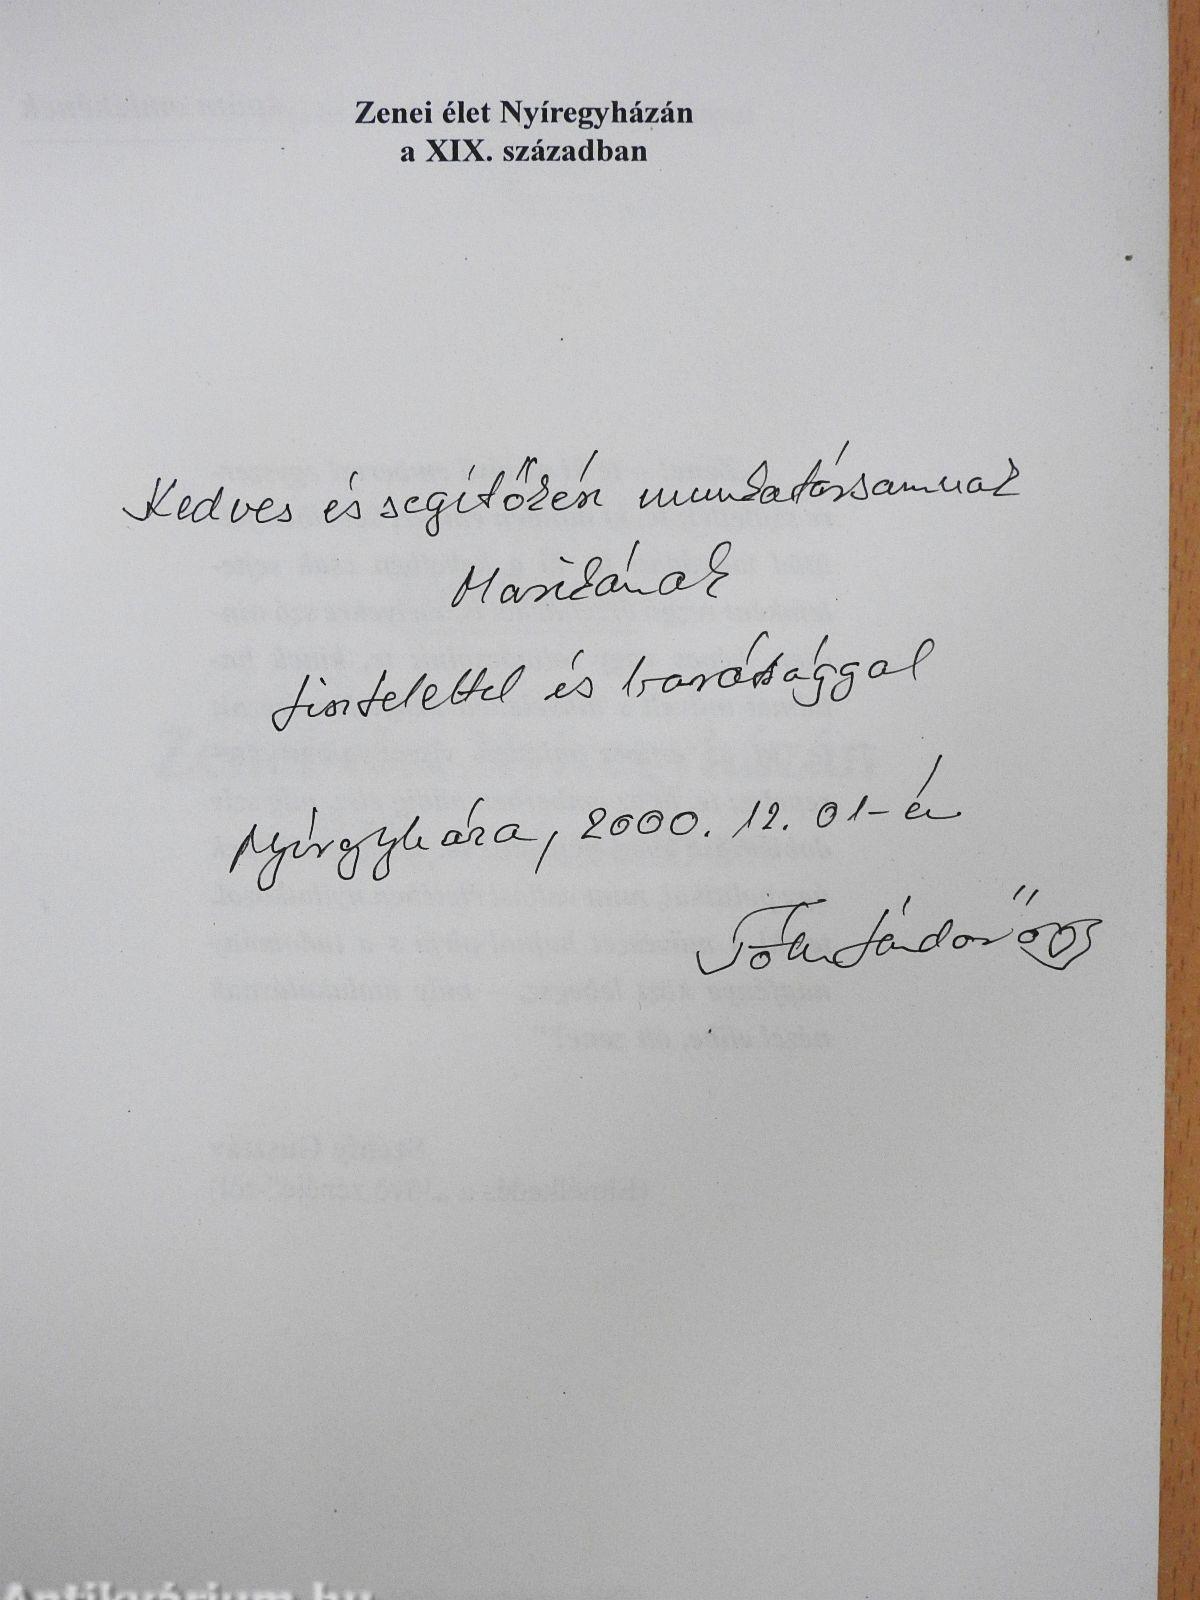 Zenei élet Nyíregyházán
a XIX. században
Kedves és segítőkész munkatársamnak
Marikának
tisztelettel és barátsággal
Nyíregyháza, 2000. 12. 01-én
Tóth Sándor
Antikvárium.hu